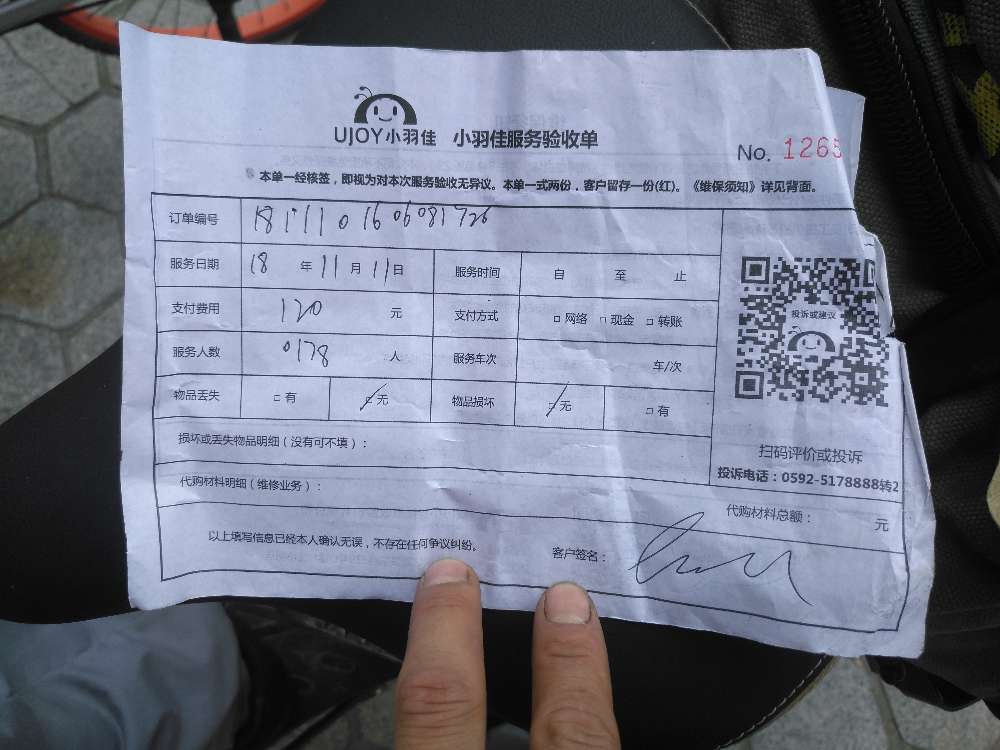 UJOY小羽佳 小羽佳服务验收单
No. 1265
本单一经核签，即视为对本次服务验收无异议。本单一式两份，客户留存一份(红)。《维保须知》详见背面。
订单编号
服务日期 18 年 11 月 11 日 服务时间 自 至 止
支付费用 120 元 支付方式 □ 网络 □ 现金 □ 转账
服务人数 0178 人 服务车次 车/次
物品丢失 □ 有 □ 无 物品损坏 □ 无 □ 有
投诉或建议
扫码评价或投诉
投诉电话：0592-5178888转2
损坏或丢失物品明细（没有可不填）：
代购材料明细（维修业务）：
代购材料总额： 元
以上填写信息已经本人确认无误，不存在任何争议纠纷。 客户签名：